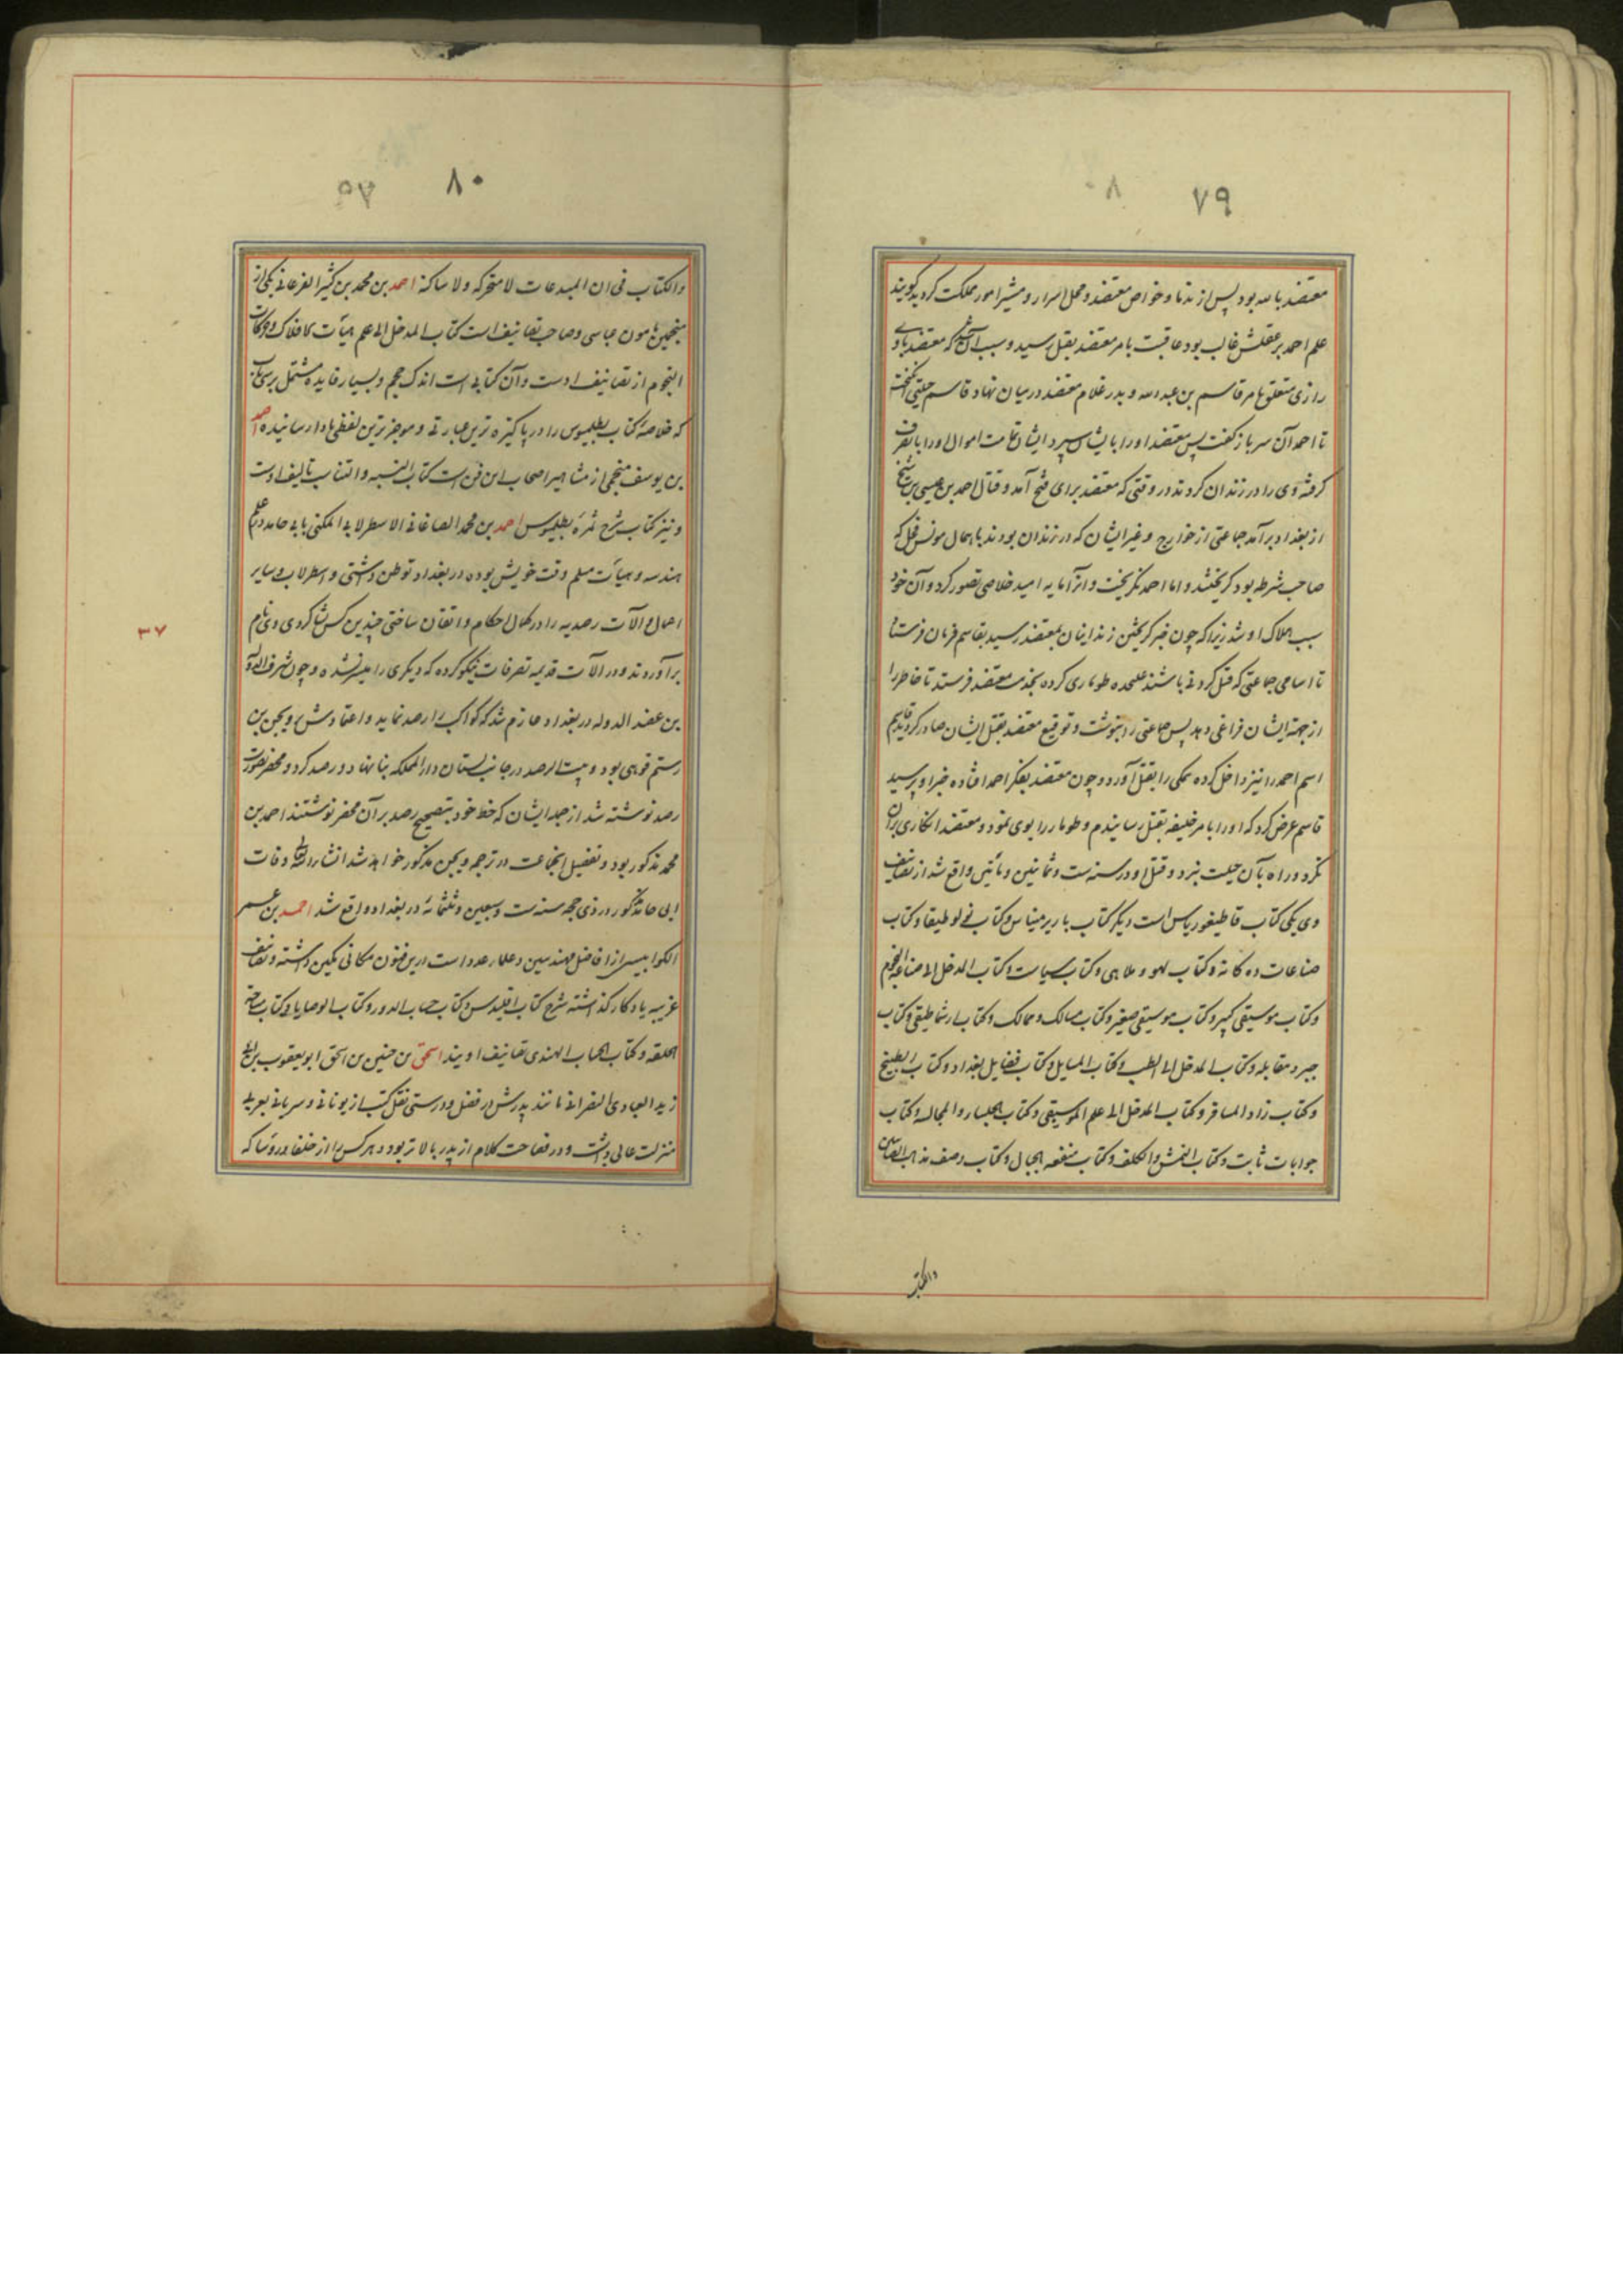 ۷۹
معتضد بالله بود پس از ندما و خواص معتضد و محل اسرار و مشیر امور مملکت کردید کویند
علم احمد بر عقلش غالب بود عاقبت بامر معتضد بقتل رسید و سبب آن شد که معتضد باوی
رازی متعلق بامر قاسم بن عبدالله و بدر غلام معتضد در میان نهاد قاسم حیلتی انکیخت
تا احمد آن سر باز کفت پس معتضد او را بایشان سپرد ایشان تمامت اموال او را بتصرف
کرفته وی را در زندان کردند در وقتی که معتضد برای فتح آمد و قتال احمد بن عیسی بن شیخ
از بغداد برآمد جماعتی از خوارج و غیر ایشان که در زندان بودند باهمال مونس فحل که
صاحب شرطه بود کریختند و اما احمد نکریخت و آنرا مایه امید خلاصی تصور کرد و آن خود
سبب هلاک او شد زیرا که چون خبر کریختن زندانیان بمعتضد رسید بقاسم فرمان فرستاد
تا اسامی جماعتی که قتل کردنی باشند علیحده طوماری کرده بخدمت معتضد فرستد تا خاطر را
از جهة ایشان فراغی دهد پس جماعتی را بنوشت و توقیع معتضد بقتل ایشان صادر کردید قاسم
اسم احمد را نیز داخل کرده همکی را بقتل آورد و چون معتضد بفکر احمد افتاده خبر او پرسید
قاسم عرض کرد که او را بامر خلیفه بقتل رسانیدم و طومار را بوی نمود و معتضد انکاری بر آن
نکرد و راه بآن حیلت نبرد و قتل او در سنه ست و ثمانین و مأتین واقع شد از تصانیف
وی یکی کتاب قاطیغوریاس است دیکر کتاب باریرمیناس و کتاب نحولوطیقا و کتاب
صناعات ده کانه و کتاب لهو و ملاهی و کتاب سیاست و کتاب المدخل الی صناعة النجوم
و کتاب موسیقی کبیر و کتاب موسیقی صغیر و کتاب مسالک و ممالک و کتاب ارثماطیقی و کتاب
جبر و مقابله و کتاب المدخل الی الطب و کتاب المسایل و کتاب فضایل بغداد و کتاب الطبیخ
و کتاب زاد المسافر و کتاب المدخل الی علم الموسیقی و کتاب الجلساء و المجالسه و کتاب
جوابات ثابت و کتاب النمش و الکلف و کتاب منفعه الجبال و کتاب وصف مذاهب الصابین
والکتاب
۸۰
والکتاب فی ان المبدعات لا متحرکه ولا ساکنة احمد بن محمد بن کثیر الفرغانی یکی از
منجمین مامون عباسی و صاحب تصانیف است کتاب المدخل الی علم هیأت کافلاک و حرکات
النجوم از تصانیف اوست و آن کتابی است اندک حجم و بسیار فایده مشتمل بر سی باب
که خلاصهٔ کتاب بطلمیوس را در پاکیزه ترین عبارتی و موجزترین لفظی بادا رسانیده احمد
بن یوسف منجمی از مشاهیر اصحاب این فن است کتاب النسبه و التناسب تالیف اوست
و نیز کتاب شرح ثمره بطلمیوس احمد بن محمد الصاغانی الاسطرلابی المکنی بابی حامد در علم
هندسه و هیأت مسلم وقت خویش بوده در بغداد توطن داشتی و اسطرلاب و سایر
اعمال و آلات رصدیه را در کمال احکام و اتقان ساختی چندین کس بشاکردی وی نام
برآوردند و در آلات قدیمه تصرفات نیکو کرده که دیکری را میسر نشده و چون شرف الدوله
بن عضد الدوله در بغداد عازم شد که کواکب را رصد نماید و اعتمادش بر ویجن بن
رستم قوهی بود و بیت الرصد در جانب بستان دار المملکه بنا نهاد و رصد کرد و محضر بصورت
رصد نوشته شد از جمله ایشان که خط خود بتصحیح رصد بر آن محضر نوشتند احمد بن
محمد مذکور بود و تفصیل اینجماعت در ترجمه ویجن مذکور خواهد شد انشاء الله وفات
ابی حامد مذکور در ذی حجه سنه ست و سبعین و ثلثمائه در بغداد واقع شد احمد بن عمر
الکرابیسی از افاضل مهندسین و علماء عدد است درین فنون مکانی مکین داشته و تصانیف
غریبه یادکار کذاشته شرح کتاب اقلیدس و کتاب حساب الدور و کتاب الوصایا و کتاب مساحة
الحلقه و کتاب الحساب الهندی تصانیف اویند اسحق بن حنین بن اسحق ابو یعقوب بن ابی
زید العبادی النصرانی مانند پدرش در فضل و درستی نقل کتب از یونانی و سریانی بعربی
منزلت عالی داشت و در فصاحت کلام از پدر بالاتر بود و هر کس را از خلفا و روسا که
۳۷